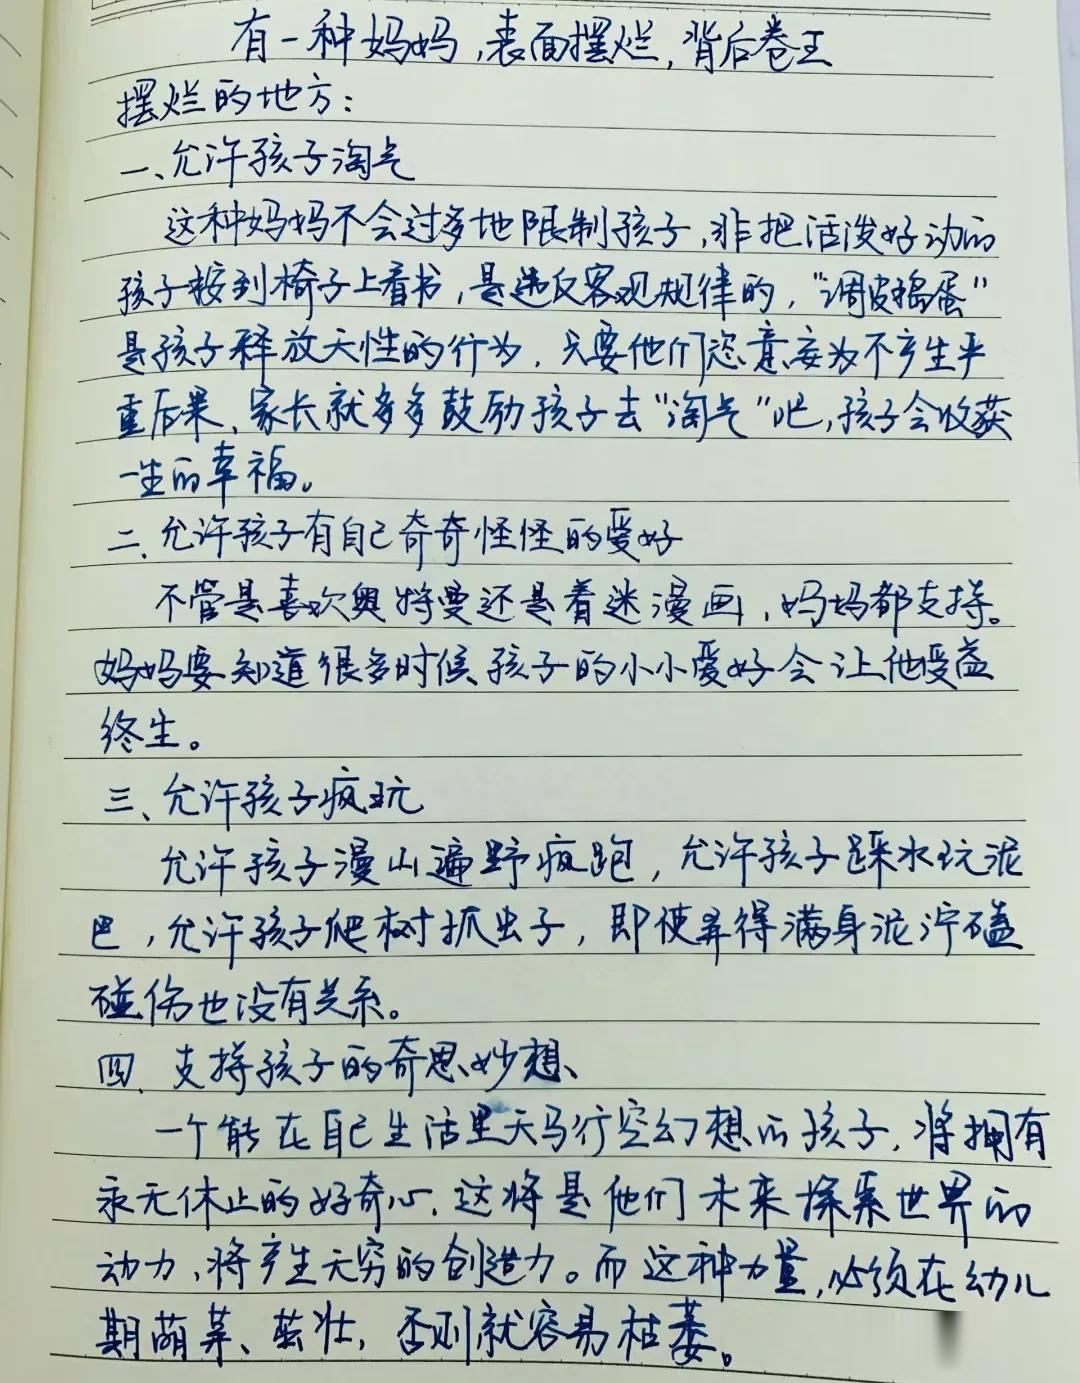 有一种妈妈,表面摆烂,背后卷王
摆烂的地方:
一、允许孩子淘气
这种妈妈不会过多地限制孩子,非把活泼好动的
孩子按到椅子上看书,是违反客观规律的,“调皮捣蛋”
是孩子释放天性的行为,只要他们恣意妄为不产生严
重后果,家长就多多鼓励孩子去“淘气”吧,孩子会收获
一生的幸福。
二、允许孩子有自己奇奇怪怪的爱好
不管是喜欢奥特曼还是着迷漫画,妈妈都支持。
妈妈要知道很多时候,孩子的小小爱好会让他受益
终生。
三、允许孩子疯玩
允许孩子漫山遍野疯跑,允许孩子踩水玩泥
巴,允许孩子爬树抓虫子,即使弄得满身泥泞磕
碰伤也没有关系。
四、支持孩子的奇思妙想、
一个能在自己生活里天马行空幻想的孩子,将拥有
永无休止的好奇心,这将是他们未来探索世界的
动力,将产生无穷的创造力。而这种力量,必须在幼儿
期萌芽、茁壮,否则就容易枯萎。